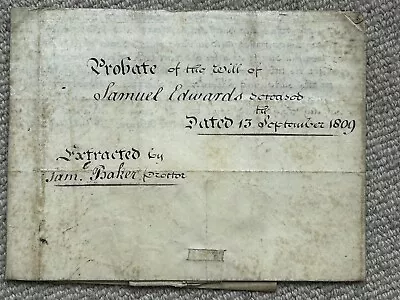 Probate of the Will of
Samuel Edwards deceased
Dated 13th September 1809
Extracted by
Sam. Baker Proctor